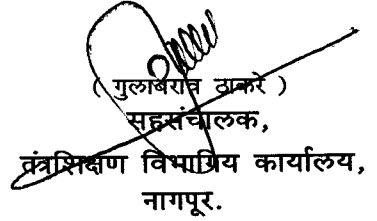 ( गुलाबराव ठाकरे )
सहसंचालक,
तंत्रशिक्षण विभागिय कार्यालय,
नागपूर.